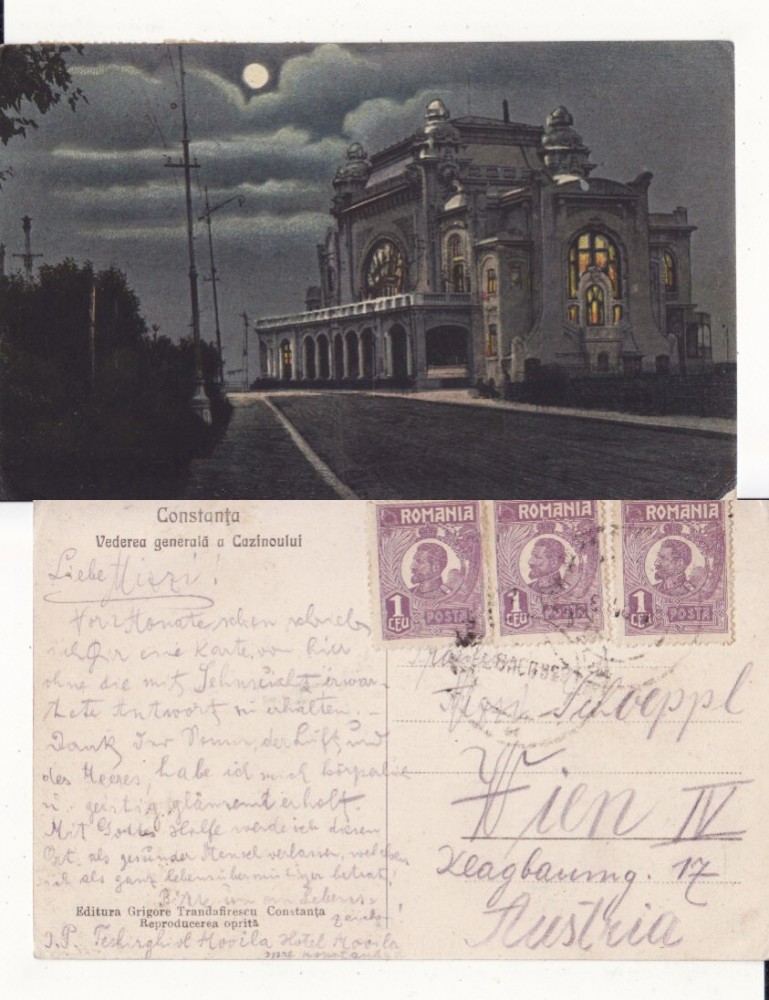 Constanța
Vederea generală a Cazinoului
ROMANIA ROMANIA ROMANIA
1 LEU POSTA 1 LEU POSTA 1 LEU POSTA
Liebe Mizzi!
Vor 2 Monate, schon, schrieb
ich Dir eine Karte von hier
ohne die mit Sehnsucht erwar-
tete Antwort zu erhalten. –
Dank der Sonne, der Luft und
des Meeres, habe ich mich körperlich
u. geistig glänzend erholt.
Mit Gottes Hilfe werde ich diesen
Ort als gesunder Mensch verlassen, welchen
ich als ganz lebensübermütiger betrat.
Bitte um ein Lebens-
zeichen!
Editura Grigore Trandafirescu Constanța
Reproducerea oprită
J.P. Techirghiol Movila Hotel Movila
Mizzi Schoeppl
Wien IV
Klagbaumg. 17
Austria